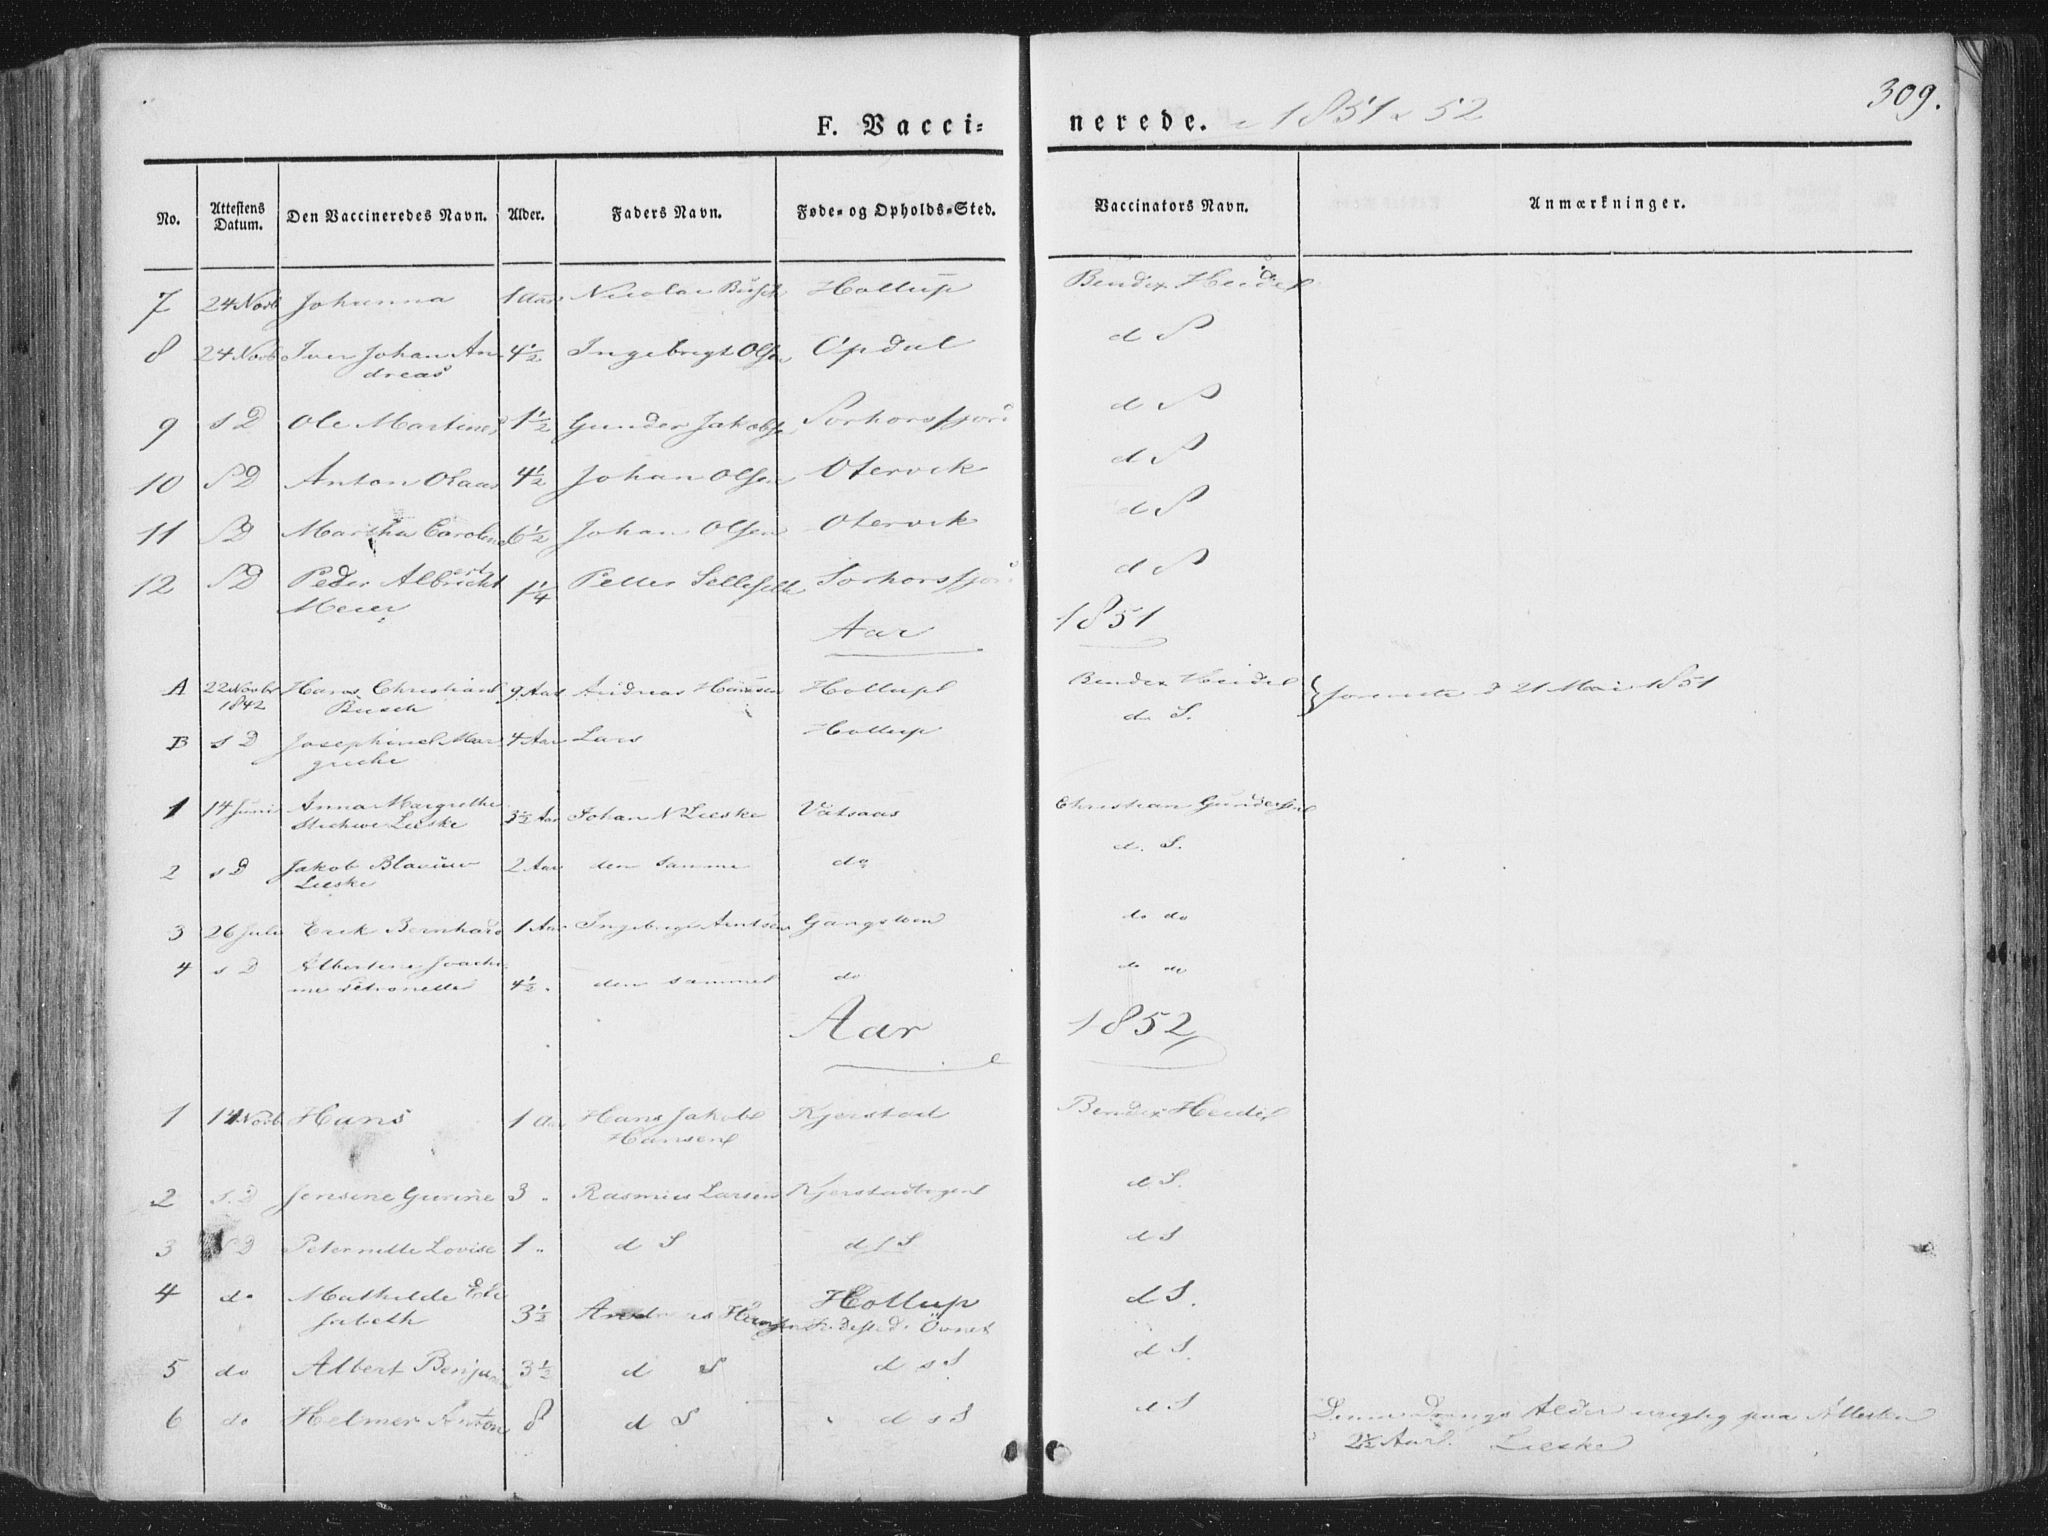 309.
F. Vacci= nerede. 1851 & 52
No. Attestens Datum. Den Vaccineredes Navn. Alder. Faders Navn. Føde= og Opholds=Sted. Vaccinators Navn. Anmærkninger.
7 24 Novb Johanna 1 Aar Nicolai Busch Hollup Bendix Heidel
8 24 Novb Iver Johan An 4½ Ingebrigt Olsen Opdal d S
dreas
9 s D Ole Martines 1½ Gunder Jakobsen Sorhorsfjord d S
10 S D Anton Olaas 4½ Johan Olsen Otervik d S
11 S D Martha Caroline 6½ Johan Olsen Otervik d S
12 S D Peder Albrecht 1¼ Petter Sorhorsfjord d S
ert
Meier
Aar 1851
A 22 Novbr Hans Christian 9 Aar Andreas Hansen Hollup Bendix Heidel } d 21 Mai 1851
1842 Busch
B s D Josephine Mar 4 Aar Lars Hollup d. S.
grethe
1 14 Juni Anna Margrethe 3½ Aar Johan N Lieske Vatsaas Christian Gundersen
Lieske
2 s D Jakob Blauuw 2 Aar den samme do d. S.
Lieske
3 26 Juli Erik Bernhard 1 Aar Ingebrigt Arntsen Gangstøen do do
4 s D Albertine Joachi 4½ . den samme do do do
me Petronelle
Aar 1852
1 14 Novb Hans 1 Aar Hans Jakob Kjerstad Bendix Heidel
Hansen
2 s. D Jensine Gurine 3 „ Rasmus Larsen Kjerstadvogen d S.
3 S D Peternelle Lovise 1 „ d S d s S d S
4 do Mathilde Eli 3½ Andreas Hansen Hollup d S.
sabeth Fødested. Övnet
5 do Albert Benjamin 3½ d S d s S d S.
6 do Helmer Anton 8 d S d s S d S Denne Drengs Alder urigtig paa Attesten
2½ Aar. Lieske